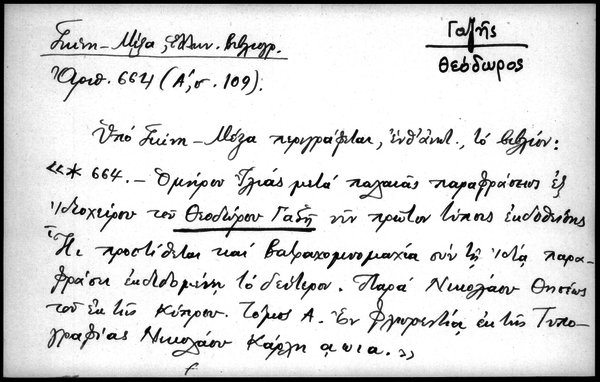 Γκίνη – Μέξα, Ἑλλην. βιβλιογρ.
Γαζῆς
Θεόδωρος
Ἀριθ. 664 (Α΄, σ. 109).
Ὑπό Γκίνη – Μέξα περιγράφεται, ἐνθ᾽ ἀνωτ., τό βιβλίον:
«* 664. – Ὁμήρου Ἰλιάς μετά παλαιᾶς παραφράσεως ἐξ
ἰδιοχείρου τοῦ Θεοδώρου Γαζῆ νῦν πρῶτον τύποις ἐκδοθείσης
ᾗ προστίθεται καί βατραχομυομαχία σύν τῇ ἰδίᾳ παρα-
φράσει ἐκδιδομένη τό δεύτερον. Παρά Νικολάου Θησέως
τοῦ ἐκ τῆς Κύπρου. Τόμος Α. Ἐν Φλωρεντίᾳ ἐκ τῆς Τυπο-
γραφίας Νικολάου Κάρλη αωια.»